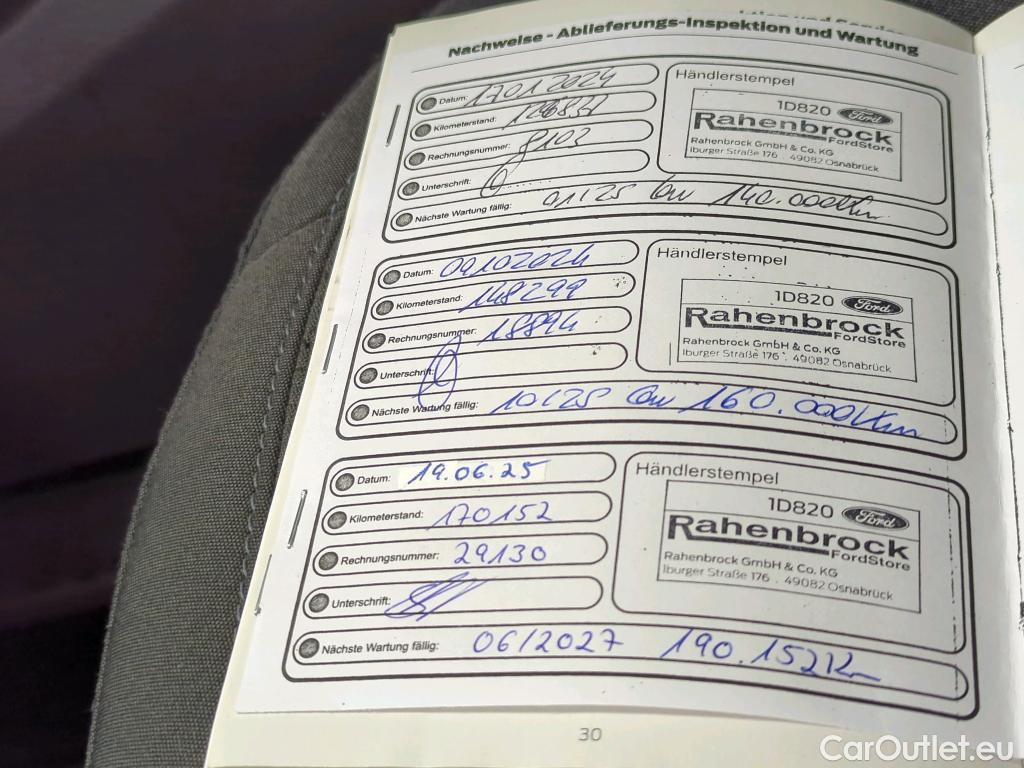 Nachweise - Ablieferungs-Inspektion und Wartung
Datum: 17012024
Kilometerstand:
Rechnungsnummer: 8103
Unterschrift:
Nächste Wartung fällig: 01/25 140.000Km
Händlerstempel
1D820 Ford
Rahenbrock
FordStore
Rahenbrock GmbH & Co. KG
Iburger Straße 176 . 49082 Osnabrück
Datum: 09102024
Kilometerstand: 148299
Rechnungsnummer: 18894
Unterschrift:
Nächste Wartung fällig: 10/25 160.000Km
Händlerstempel
1D820 Ford
Rahenbrock
FordStore
Rahenbrock GmbH & Co. KG
Iburger Straße 176 . 49082 Osnabrück
Datum: 19.06.25
Kilometerstand: 170152
Rechnungsnummer: 29130
Unterschrift:
Nächste Wartung fällig: 06/2027 190.152Km
Händlerstempel
1D820 Ford
Rahenbrock
FordStore
Rahenbrock GmbH & Co. KG
Iburger Straße 176 . 49082 Osnabrück
30
CarOutlet.eu